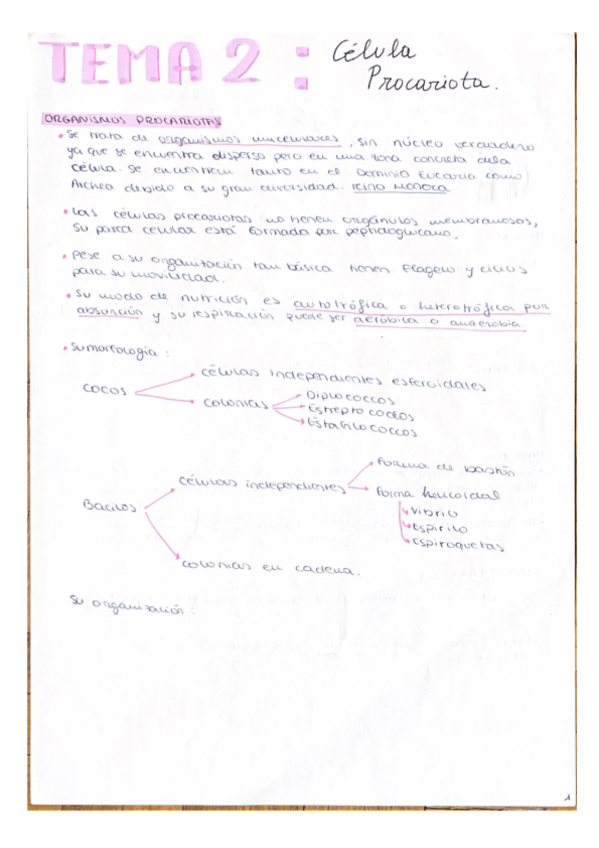 TEMA 2 : Célula
Procariota.
ORGANISMOS PROCARIOTAS
• Se trata de organismos unicelulares, sin núcleo verdadero
ya que se encuentra disperso pero en una zona concreta de la
célula. Se encuentran tanto en el Dominio Eucaria como
Archea debido a su gran diversidad. reino Monera
• Las células procariotas no tienen orgánulos membranosos,
su pared celular está formada por peptidoglucano.
• Pese a su organización tan básica tienen flagelo y cilios
para su movilidad.
• Su modo de nutrición es autotrófica o heterotrófica por
absorción y su respiración puede ser aeróbica o anaerobia.
• Su morfología :
cocos
células independientes esferoidales
colonias
Diplococcos
Estreptococcos
Estafilococcos
Bacilos
células independientes
Forma de bastón
Forma helicoidal
Vibrio
Espirilo
Espiroquetas
colonias en cadena.
Su organización :
1